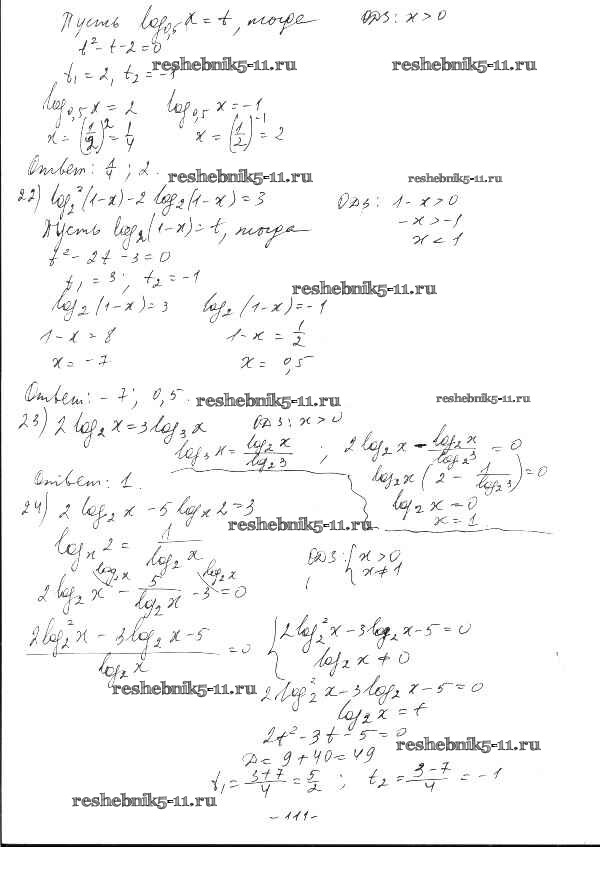 Пусть log₀,₅ x = t, тогда ОДЗ: x > 0
t² - t - 2 = 0
reshebnik5-11.ru reshebnik5-11.ru
t₁ = 2, t₂ = -1
log₀,₅ x = 2 log₀,₅ x = -1
x = (1/2)² = 1/4 x = (1/2)⁻¹ = 2
Ответ: 1/4; 2.
reshebnik5-11.ru reshebnik5-11.ru
22) log₂²(1-x) - 2 log₂(1-x) = 3 ОДЗ: 1-x > 0
-x > -1
Пусть log₂(1-x) = t, тогда x < 1
t² - 2t - 3 = 0
t₁ = 3; t₂ = -1
reshebnik5-11.ru
log₂(1-x) = 3 log₂(1-x) = -1
1-x = 8 1-x = 1/2
x = -7 x = 0,5
Ответ: -7; 0,5.
reshebnik5-11.ru reshebnik5-11.ru
23) 2 log₂ x = 3 log₃ x ОДЗ: x > 0
log₃ x = log₂ x / log₂ 3 ; 2 log₂ x - log₂ x / log₂ 3 = 0
log₂ x (2 - 1/log₂ 3) = 0
log₂ x = 0
x = 1
Ответ: 1.
24) 2 log₂ x - 5 logₓ 2 = 3
reshebnik5-11.ru
logₓ 2 = 1 / log₂ x ОДЗ: { x > 0
x ≠ 1
2 log₂ x \log₂ x - 5 / log₂ x - 3 \log₂ x = 0
(2 log₂² x - 3 log₂ x - 5) / log₂ x = 0 { 2 log₂² x - 3 log₂ x - 5 = 0
log₂ x ≠ 0
reshebnik5-11.ru
2 log₂² x - 3 log₂ x - 5 = 0
log₂ x = t
2t² - 3t - 5 = 0
reshebnik5-11.ru
D = 9 + 40 = 49
t₁ = (3+7)/4 = 5/2 ; t₂ = (3-7)/4 = -1
reshebnik5-11.ru
- 111 -